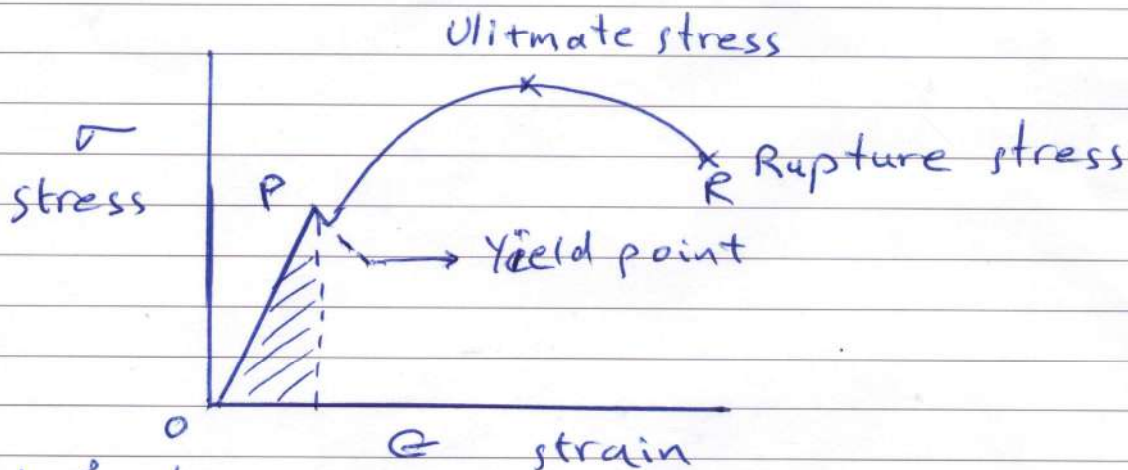 Ulitmate stress
σ
stress
P
R
Rupture stress
Yield point
O
ϵ strain